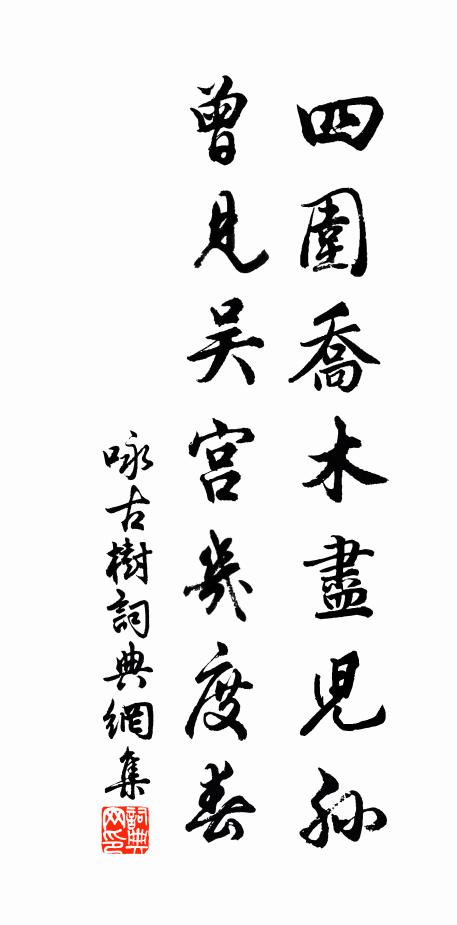 四圍喬木盡兒孫
曾見吴宫幾度春
咏古樹詞典網集
詞典网印